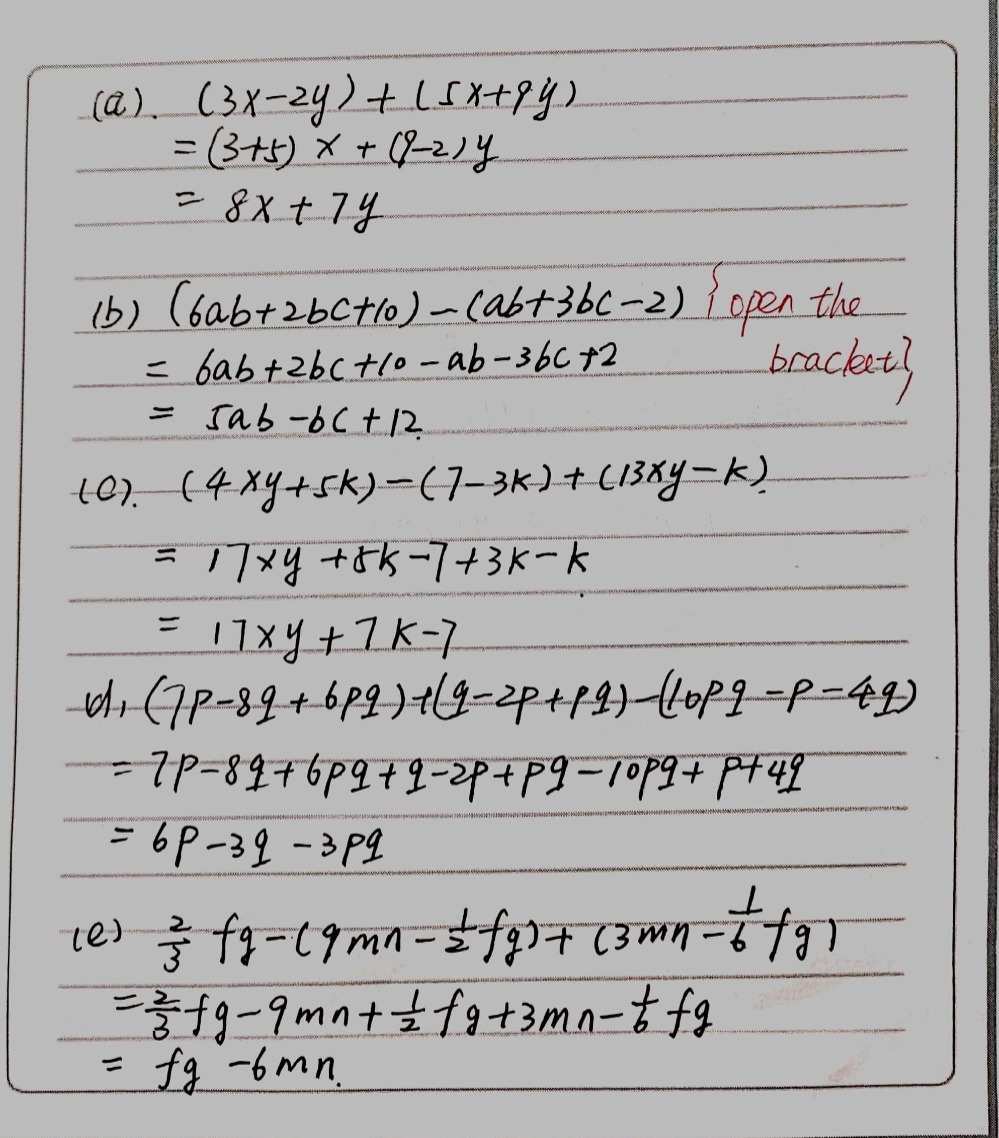 (a). (3x-2y)+(5x+9y)
=(3+5) x +(9-2)y
= 8x+7y
(b) (6ab+2bc+10)-(ab+3bc-2) {open the
= 6ab+2bc+10-ab-3bc+2 bracket}
= 5ab-bc+12.
(c). (4xy+5k)-(7-3k)+(13xy-k).
= 17xy+5k-7+3k-k
= 17xy+7k-7
d, (7p-8q+6pq)+(q-2p+pq)-(10pq-p-4q)
=7p-8q+6pq+q-2p+pq-10pq+p+4q
= 6p-3q-3pq
(e) 2/3 fg-(9mn-1/2fg)+(3mn-1/6fg)
=2/3fg-9mn+1/2fg+3mn-1/6fg
= fg-6mn.